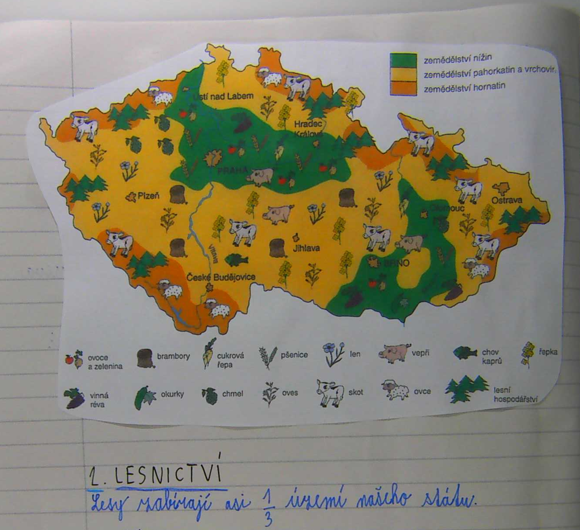 zemědělství nížin
zemědělství pahorkatin a vrchovin.
zemědělství hornatin
stí nad Labem
Hradec
Králové
PRAHA
Plzeň
Ostrava
omouc
Jihlava
BRNO
České Budějovice
ovoce
a zelenina
brambory
cukrová
řepa
pšenice
len
vepři
chov
kaprů
řepka
vinná
réva
okurky
chmel
oves
skot
ovce
lesní
hospodářství
1. LESNICTVÍ
Lesy zabírají asi 1/3 území našeho státu.